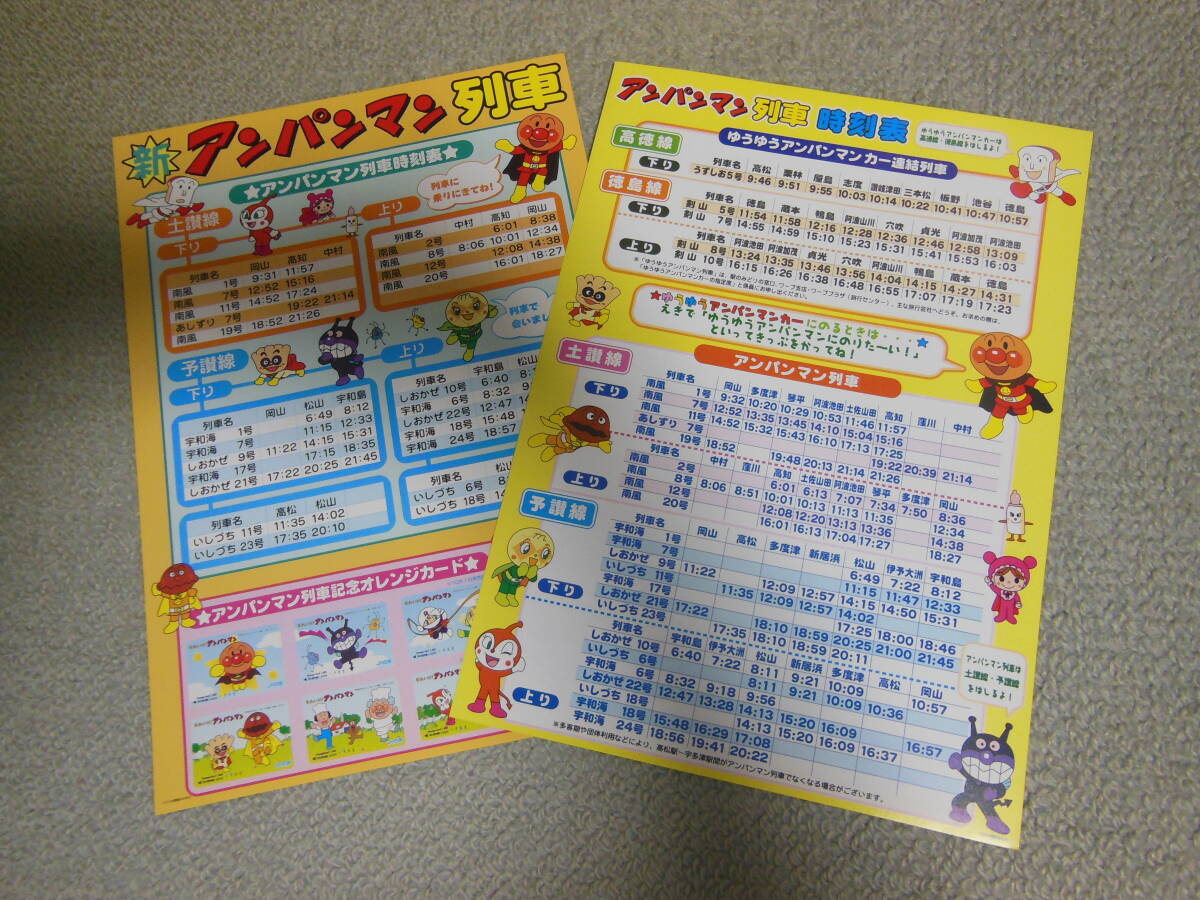 新
アンパンマン列車
★アンパンマン列車時刻表★
列車に
乗りにきてね!
土讃線
下り
列車名 岡山 高知 中村
南風 1号 9:31 11:57
南風 7号 12:52 15:16
南風 11号 14:52 17:24
あしずり 7号 19:22 21:14
南風 19号 18:52 21:26
上り
列車名 中村 高知 岡山
南風 2号 6:01 8:38
南風 8号 8:06 10:01 12:34
南風 12号 12:08 14:38
南風 20号 16:01 18:27
列車で
会いまし
予讃線
下り
列車名 岡山 松山 宇和島
宇和海 1号 6:49 8:12
宇和海 7号 11:15 12:33
しおかぜ 9号 11:22 14:15 15:31
宇和海 17号 17:15 18:35
しおかぜ 21号 17:22 20:25 21:45
列車名 高松 松山
いしづち 11号 11:35 14:02
いしづち 23号 17:35 20:10
上り
列車名 宇和島 松山
しおかぜ 10号 6:40
宇和海 6号 8:32
しおかぜ 22号 12:47
宇和海 18号 15:48
宇和海 24号 18:57
列車名 松山
いしづち 6号
いしづち 18号
★アンパンマン列車記念オレンジカード★
アンパンマン
アンパンマン
アンパンマン
アンパンマン
アンパンマン列車 時刻表
ゆうゆうアンパンマンカーは
高徳線・徳島線をはしるよ!
高徳線
ゆうゆうアンパンマンカー連結列車
下り
列車名 高松 栗林 屋島 志度 讃岐津田 三本松 板野 池谷 徳島
うずしお5号 9:46 9:51 9:55 10:03 10:14 10:22 10:41 10:47 10:57
徳島線
下り
列車名 徳島 蔵本 鴨島 阿波山川 穴吹 貞光 阿波加茂 阿波池田
剣山 5号 11:54 11:58 12:16 12:28 12:36 12:46 12:58 13:09
剣山 7号 14:55 14:59 15:10 15:23 15:31 15:41 15:53 16:03
上り
列車名 阿波池田 阿波加茂 貞光 穴吹 阿波山川 鴨島 蔵本 徳島
剣山 8号 13:24 13:35 13:46 13:56 14:04 14:15 14:27 14:31
剣山 10号 16:15 16:26 16:38 16:48 16:55 17:07 17:19 17:23
※「ゆうゆうアンパンマン列車」は、駅のみどりの窓口、ワープ支店・ワーププラザ(旅行センター)、主な旅行会社へどうぞ。お求めの際は、
「ゆうゆうアンパンマンカーの指定席」と係員にお申し出ください。
★ゆうゆうアンパンマンカーにのるときは・・・・★
えきで「ゆうゆうアンパンマンにのりたーい!」
といってきっぷをかってね!
土讃線
アンパンマン列車
下り
列車名 岡山 多度津 琴平 阿波池田 土佐山田 高知 窪川 中村
南風 1号 9:32 10:20 10:29 10:53 11:46 11:57
南風 7号 12:52 13:35 13:45 14:10 15:04 15:16
南風 11号 14:52 15:32 15:43 16:10 17:13 17:25
あしずり 7号 19:22 20:39 21:14
南風 19号 18:52 19:48 20:13 21:14 21:26
上り
列車名 中村 窪川 高知 土佐山田 阿波池田 琴平 多度津 岡山
南風 2号 6:01 6:13 7:07 7:34 7:50 8:36
南風 8号 8:06 8:51 10:01 10:13 11:13 11:35 12:34
南風 12号 12:08 12:20 13:13 13:36 14:38
南風 20号 16:01 16:13 17:04 17:27 18:27
予讃線
下り
列車名 岡山 高松 多度津 新居浜 松山 伊予大洲 宇和島
宇和海 1号 6:49 7:22 8:12
宇和海 7号 11:15 11:47 12:33
しおかぜ 9号 11:22 12:09 12:57 14:15 14:50 15:31
いしづち 11号 11:35 12:09 12:57 14:02
宇和海 17号 17:25 18:00 18:46
しおかぜ 21号 17:22 18:10 18:59 20:25 21:00 21:45
いしづち 23号 17:35 18:10 18:59 20:11
上り
列車名 宇和島 伊予大洲 松山 新居浜 多度津 高松 岡山
しおかぜ 10号 6:40 7:22 8:11 9:21 10:09 10:57
いしづち 6号 8:11 9:21 10:09 10:36
宇和海 6号 8:32 9:18 9:56
しおかぜ22号 12:47 13:28 14:13 15:20 16:09 16:57
いしづち 18号 14:13 15:20 16:09 16:37
宇和海 18号 15:48 16:29 17:08
宇和海 24号 18:56 19:41 20:22
※多客期や団体利用などにより、高松駅〜宇多津駅間がアンパンマン列車でなくなる場合がございます。
アンパンマン列車は
土讃線・予讃線
をはしるよ!